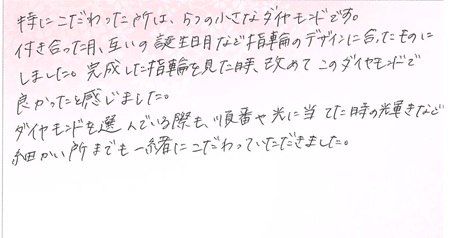 特にこだわった所は、5つの小さなダイヤモンドです。
付き合った月、互いの誕生日月など指輪のデザインに合ったものに
しました。完成した指輪を見た時、改めてこのダイヤモンドで
良かったと感じました。
ダイヤモンドを選んでいる際も、順番や光に当てた時の光輝きなど
細かい所までも一緒にこだわっていただきました。